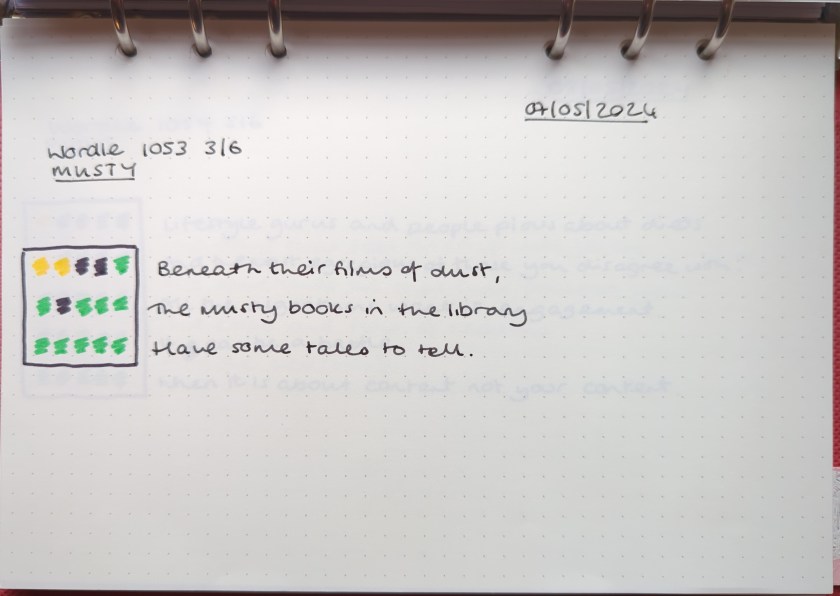 07/05/2024
Wordle 1053 3/6
MUSTY
Beneath their films of dust,
The musty books in the library
Have some tales to tell.